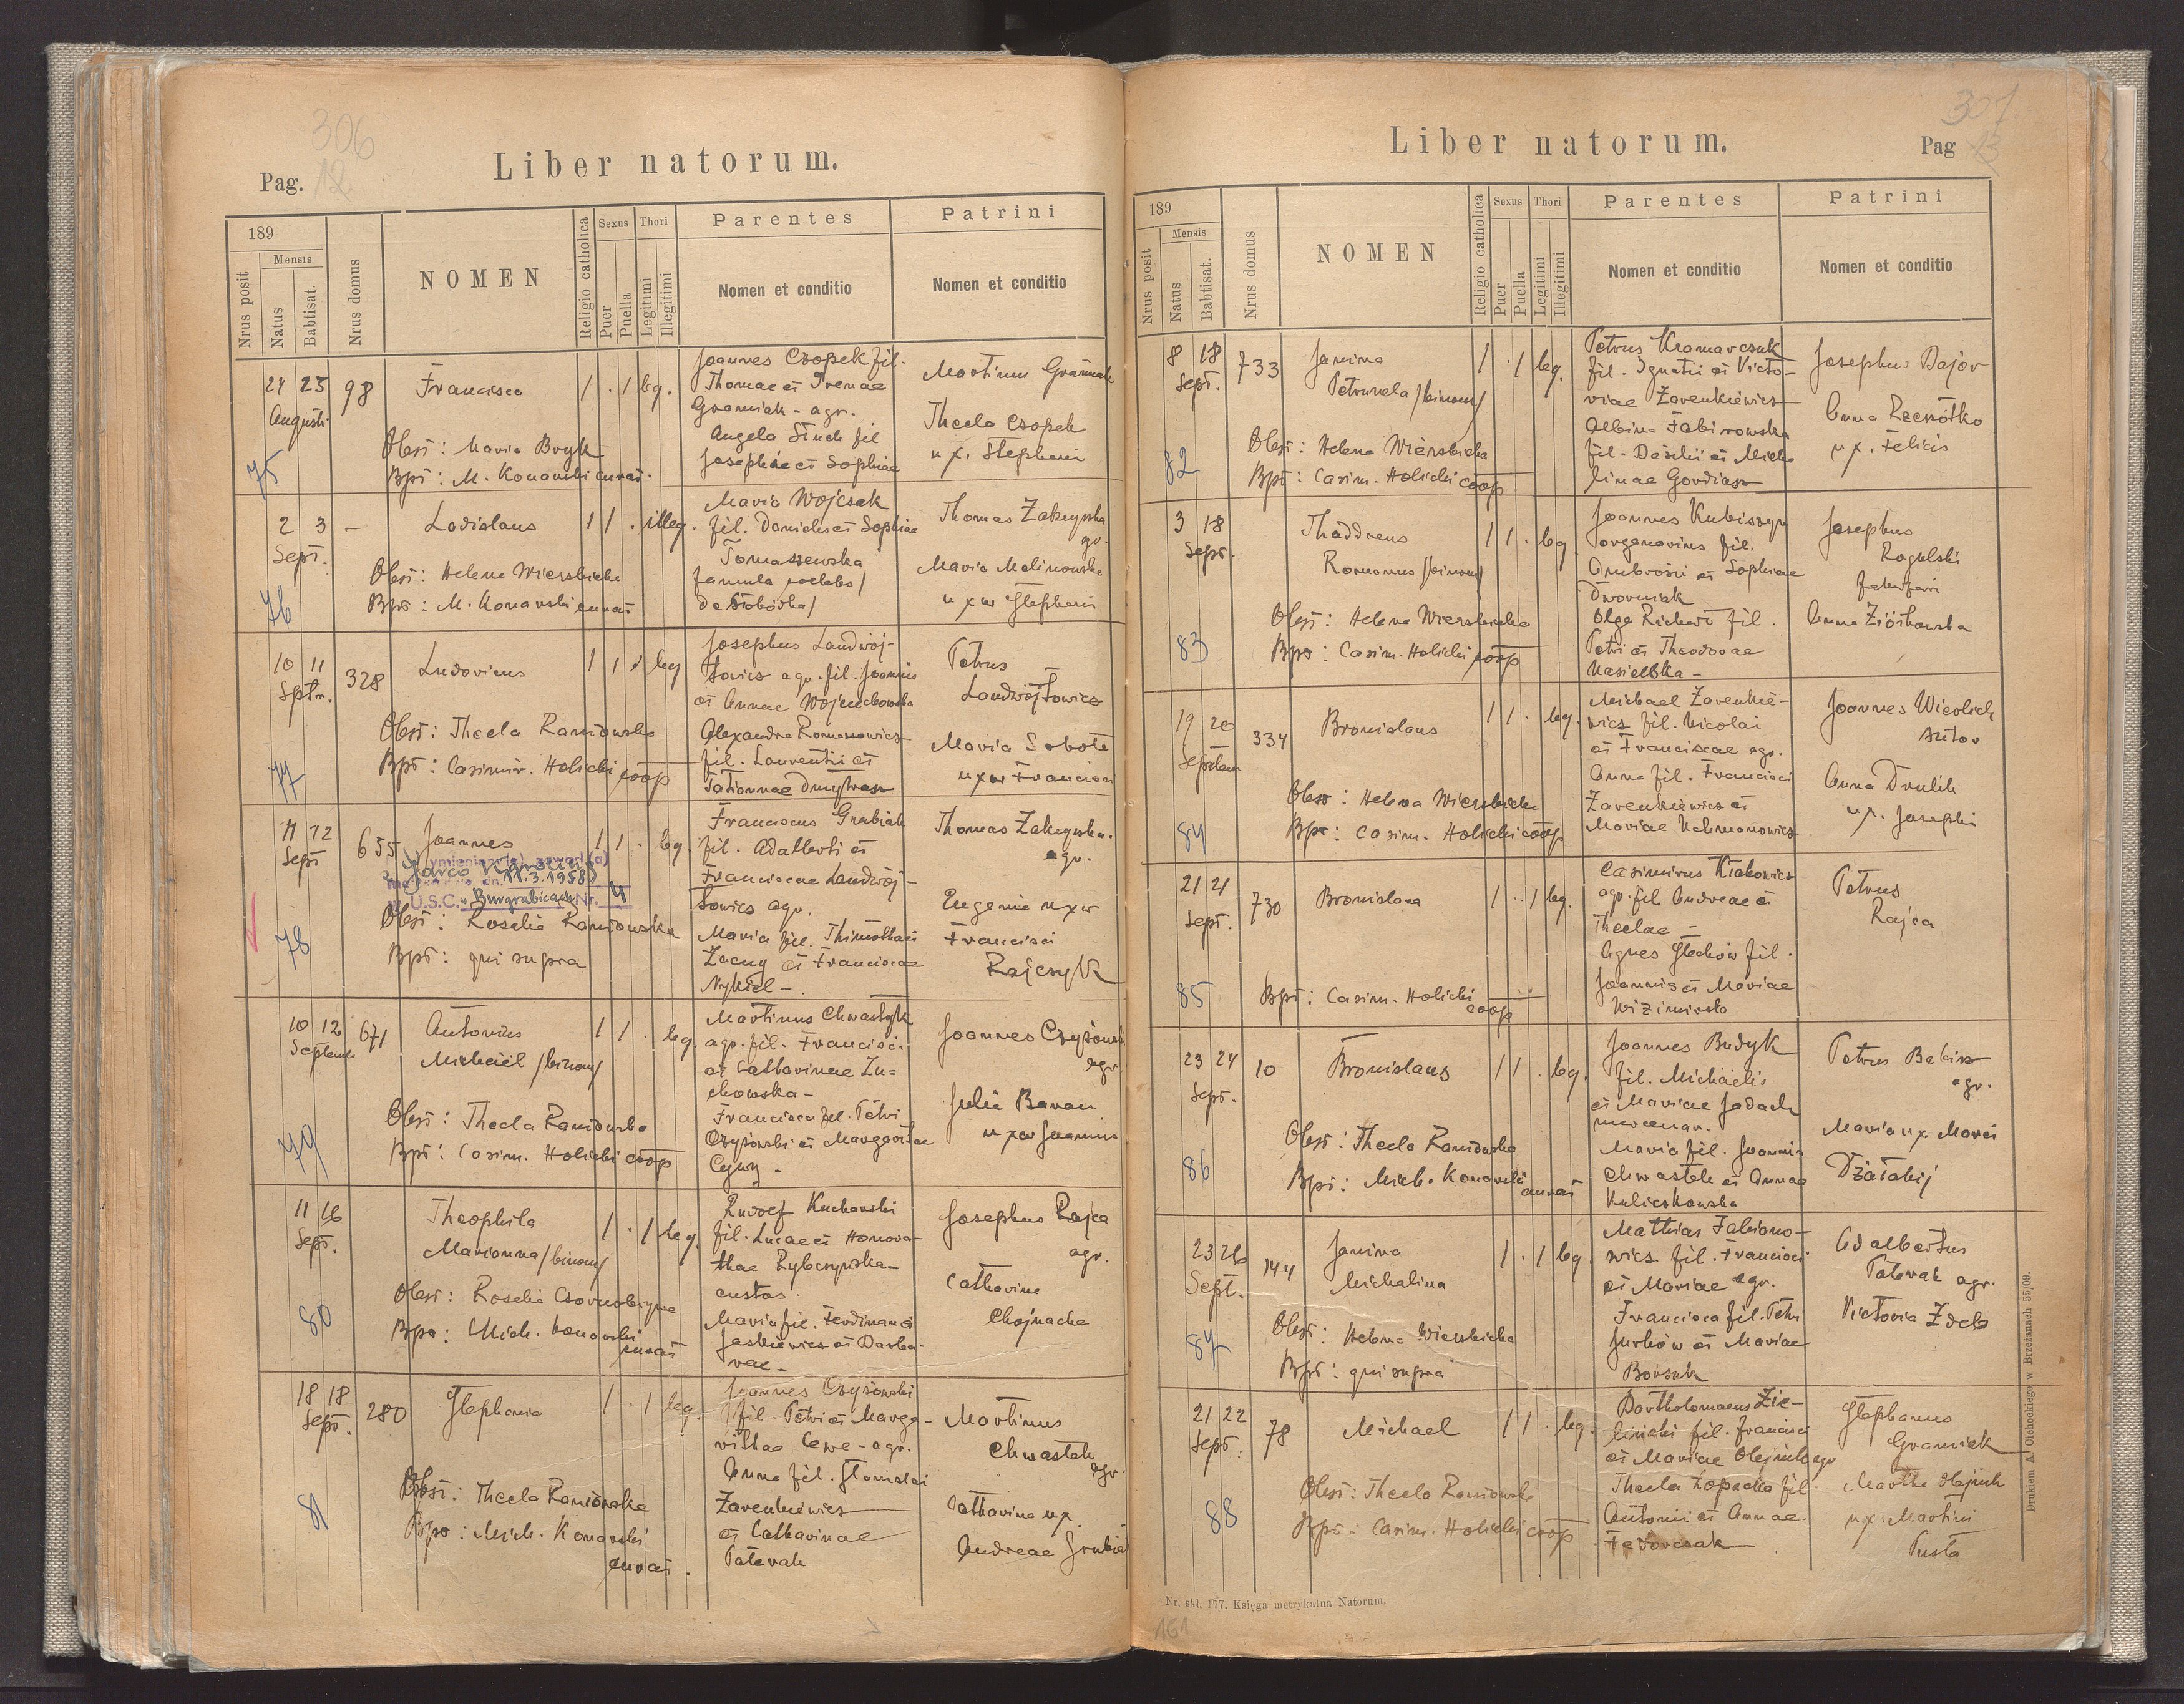 306
Pag. 12
Liber natorum.
189
Nrus posit
Mensis
Natus
Babtisat.
Nrus domus
NOMEN
Religio catholica
Sexus
Puer
Puella
Thori
Legitimi
Illegitimi
Parentes
Nomen et conditio
Patrini
Nomen et conditio
24 25 98 Francisca 1 . 1 leg.
Augusti
Obst: Maria Bryk
Bpt: M. Konarski
75
Joannes Czopek fil.
Thomae et Irenae
Graniak - agr.
Angela fil
Josephi et Sophiae
Martinus Graniak
Thecla Czopek
ux. Stephani
2 3 - Ladislaus 1 1 . illeg.
Sept.
Obst: Helena Wierzbicka
Bpt: M. Konarski
76
Maria Wojczak
fil. Danielis et Sophiae
Tomaszewska
famula
Thomas Zakrzyska
agr.
Maria Malinowska
uxor Stephani
10 11 328 Ludovicus 1 1 . leg
Sptr.
Obst: Thecla Raniowska
Bpt: Casimir. Holicki coop
77
Josephus Landwój-
towicz agr. fil. Joannis
et Annae Wojciechowska
Alexandra Romanowicz
fil. Laurentii et
Tatiannae Dmytrasz
Petrus
Landwójtowicz
Maria Sobota
uxor Francisci
11 12 655 Joannes 1 1 . leg.
Sept
11.3.1958
U.S.C. w Burgrabicach Nr. 4
Obst: Rosalia Raniowska
Bpt: qui supra
78
Franciscus Grabiak
fil. Adalberti et
Franciscae Landwój-
towicz agr.
Maria fil. Thimothaei
Zacny et Franciscae
Nykiel -
Thomas Zakrzyska.
agr.
Eugenia uxor
Francisci
Rajczyk
10 12 671 Antonius 1 1 . leg.
Septemb
Michael /binom/
Obst: Thecla Raniowska
Bpt: Casim. Holicki coop
79
Martinus Chwastyk
agr. fil. Francisci
et Catharinae Zu=
chowska -
Francisca fil. Petri
Czyżowski et Margarithae
Cywy -
Joannes Czyżowski
agr
Julia Baran
uxor Joannis
11 16 Theophila 1 . 1 leg.
Sept.
Marianna /binom/
Obst: Rosalia
Bpt: Mich. Konarski
80
Rudolf Kucharski
fil. Lucae et Honora-
thae Rybczyńska -
custos.
Maria fil. Ferdinandi
Jaskiewicz et Barba-
rae -
Josephus Rajca
agr.
Catharina
Chojnacka
18 18 280 Stephania 1 . 1 leg.
Sept.
Obst: Thecla Raniowska
Bpt: Mich. Konarski
81
Joannes Czyżowski
fil. Petri et Marga-
rithae Cewe - agr.
Anna fil. Stanislai
Zarenkiewicz
et Catharinae
Paterak
Martinus
Chwastek
agr.
Catharina ux.
Andreae Grabiak
307
Pag 13
Liber natorum.
189
Nrus posit
Mensis
Natus
Babtisat.
Nrus domus
NOMEN
Religio catholica
Sexus
Puer
Puella
Thori
Legitimi
Illegitimi
Parentes
Nomen et conditio
Patrini
Nomen et conditio
8 18 733 Janina 1 . 1 leg.
Sept.
Petrunela /binom/
Obst: Helena Wierzbicka
Bpt: Casim. Holicki coop
82
Petrus Kramarczuk
fil. Ignatii et Victo-
riae Zarenkiewicz
Albina Fabirowska
fil. Basilii et Micha
linae Gordiasz
Josephus Bajor
Anna Rzeszótko
ux. Felicis
3 18 Thaddaeus 1 1 . leg
Sept.
Romanus /binom/
Obst: Helena Wierzbicka
Bpt: Casim. Holicki coop
83
Joannes Kubiszyn
organarius fil.
Ambrosii et Sophiae
Dworniak
Olga Richert fil.
Petri et Theodorae
Kasielska -
Josephus
Rogulski
Anna Ziółkowska
19 20 334 Bronislaus 1 1 . leg.
Septem
Obst: Helena Wierzbicka
Bpt: Casim. Holicki coop
84
Michael Zarenkie-
wicz fil. Nicolai
et Franciscae agr.
Anna fil. Francisci
Zarenkiewicz et
Mariae Uchmanowicz
Joannes Wierlich
sutor
Anna Drulik
ux. Josephi
21 21 730 Bronislava 1 . 1 leg.
Sept.
Bpt: Casim. Holicki coop
85
Casimirus Kiakowicz
agr. fil Andreae et
Theclae -
Agnes Glechów fil.
Joannis et Mariae
Petrus
Rajca
23 24 10 Bronislaus 1 1 . leg.
Sept.
Obst: Thecla Raniowska
Bpt: Mich. Konarski
86
Joannes Budyk
fil. Michaelis
et Mariae Jadach
mercenar.
Maria fil. Joannis
Chwastek et Annae
Kuliczkowska
Petrus Babisz
agr.
Maria ux. Marci
Działabij
23 26 144 Janina 1 . 1 leg.
Sept.
Michalina
Obst: Helena Wierzbicka
Bpt: qui supra
87
Mathias Fabiano-
wicz fil. Francisci
et Mariae agr.
Francisca fil. Petri
Jurków et Mariae
Borsuk
Adalbertus
Paterak agr.
Victoria Zdeb
21 22 78 Michael 1 1 . leg.
Sept.
Obst: Thecla Raniowska
Bpt: Casim. Holicki coop
88
Bartholomaeus Zie-
liński fil. Francisci
et Mariae Olejnik agr
Thecla Łopacka fil.
Antonii et Annae
Fedorczak
Stephanus
Graniak
Martha Olejnik
ux. Martini
Pusta
Nr. skł. 177. Księga metrykalna Natorum.
Drukiem A. Cichockiego w Brzeżanach 55/09.
161